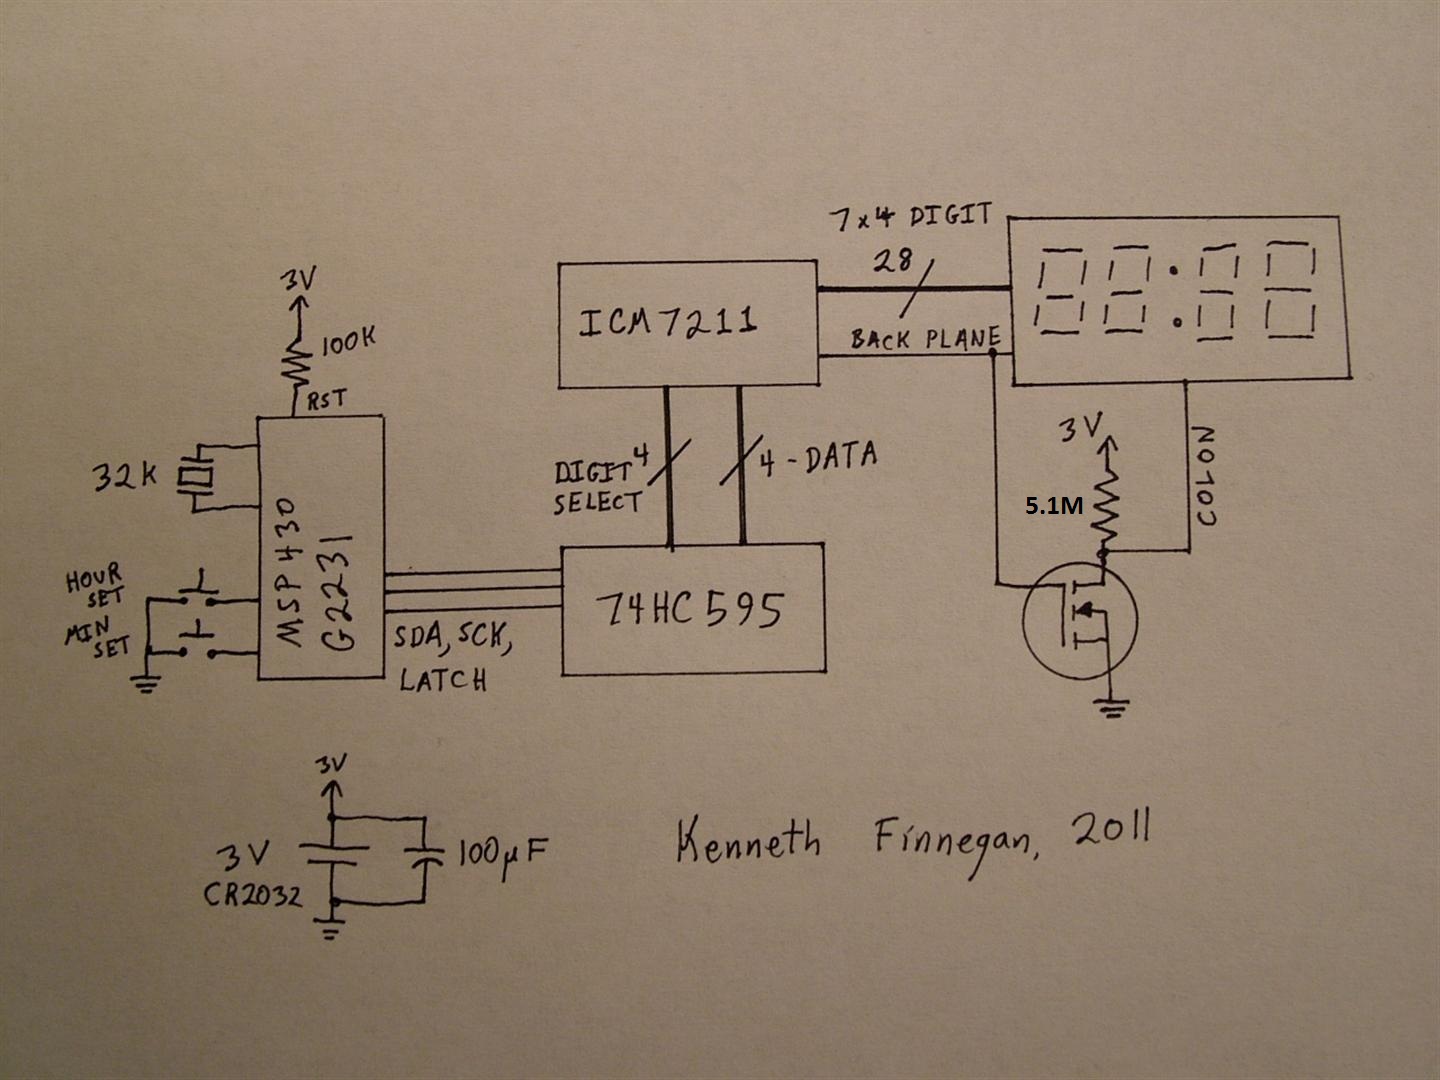 7x4 DIGIT
28
BACK PLANE
ICM7211
3V
100K
RST
32K
MSP430
G2231
HOUR
SET
MIN
SET
SDA, SCK,
LATCH
DIGIT 4
SELECT
4-DATA
74HC595
3V
5.1M
COLON
3V
3V
CR2032
100µF
Kenneth Finnegan, 2011